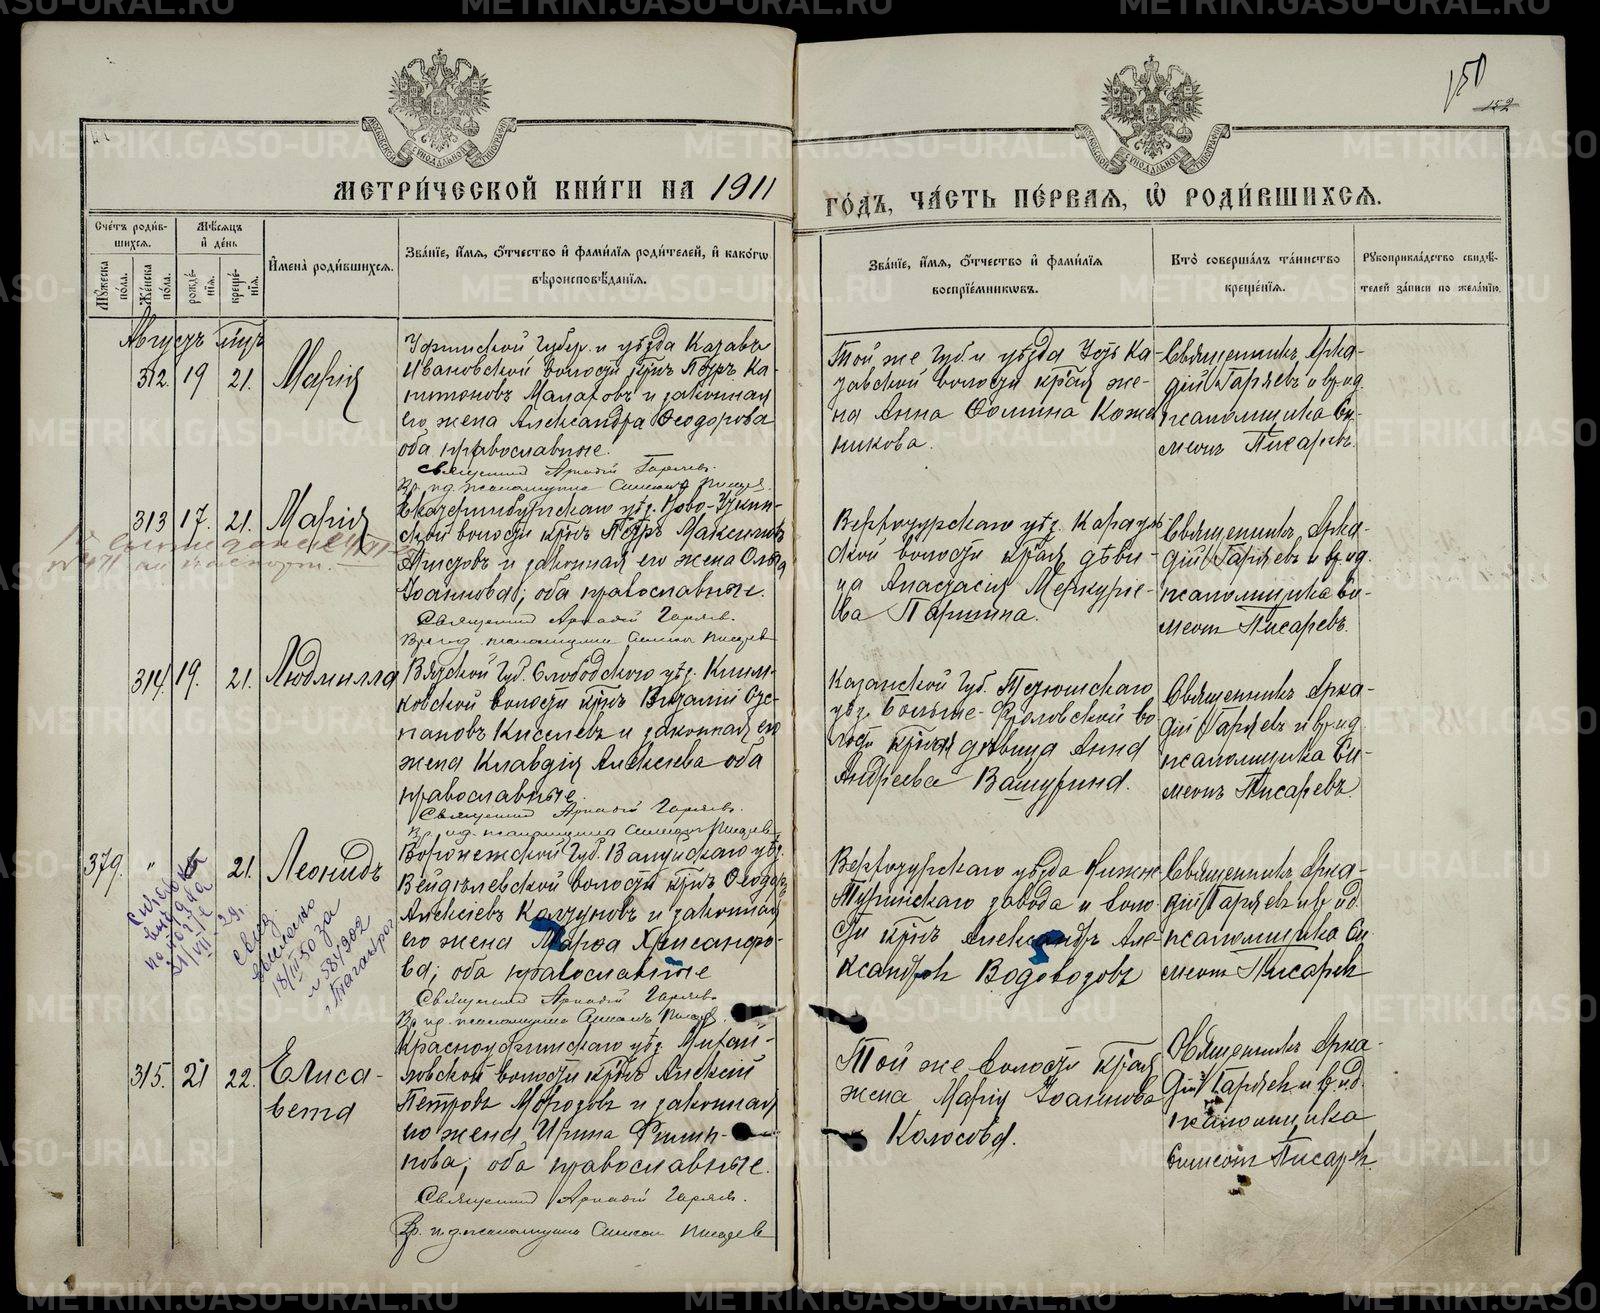 METRIKI.GASO-URAL.RU
150
152
МЕТРИ́ЧЕСКОЙ КНИ́ГИ НА 1911
ГО́ДЪ, ЧА́СТЬ ПЕ́РВАЯ, Ѽ РОДИ́ВШИХСЯ.
Сче́тъ роди́вшихся.
Му́жеска по́ла.
Же́нска по́ла.
Мѣ́сяцъ и де́нь
рожде́нїя.
креще́нїя.
Имена̀ роди́вшихся.
Зва́нїе, и́мя, ѻ҆́тчество и фами́лїя роди́телей, и како́гѡ
вѣроисповѣ́данїя.
Зва́нїе, и́мя, ѻ҆́тчество и фами́лїя
воспрїе́мникѡвъ.
Кто̀ соверша́лъ та́инство
креще́нїя.
Рꙋкоприкла́дство свидѣ́телей за́писи по жела́нїю.
Августъ
312. 19 21. Марія
Уфимской Губер. и уѣзда Казанъ
Ивановской волости крнъ Петръ Ка-
питоновъ Малаховъ и законная
его жена Александра Ѳеодорова
оба православные.
Священник Аркадій Гаряев.
Той же Губ. и уѣзда
волости кр-ая же-
на Анна Ѳомина Коже
никова.
Священникъ Арка-
дій Гаряевъ и вр. ид.
псаломщика Си-
меонъ Писаревъ.
313 17. 21. Марія
Екатеринбургскаго уѣз. Ново-Уткин-
ской волости крнъ Петръ Максимовъ
и законная его жена Ольга
Іоаннова; оба православные.
Священник Аркадій Гаряев.
Вр. ид. псаломщика Симеон Писарев
Верхотурскаго уѣз. Карауль
ской волости кр-ая дѣви-
ца Анастасія Меркурье-
ва Паршина.
Священникъ Арка-
дій Гаряевъ и вр. ид.
псаломщика Си-
меон Писаревъ.
314. 19. 21. Людмилла
Вятской Губ. Слободского уѣз.
ковской волости крнъ Виталій Сте-
пановъ Киселевъ и законная его
жена Клавдія Алексѣева оба
православные.
Священник Аркадій Гаряев.
Вр. ид. псаломщика Симеон Писарев
Казанской Губ. Тетюшскаго
уѣз. Больше-Фроловской во-
лости кр-ая дѣвица Анна
Андреева Вашурина.
Священникъ Арка-
дій Гаряевъ и вр. ид.
псаломщика Си-
меонъ Писаревъ.
379. " 21. Леонидъ
Воронежской Губ. Валуйскаго уѣз.
Вейделевской волости крнъ Ѳеодоръ
Алексѣевъ и законная
его жена Марфа Хрисанфо-
ва; оба православные
Священник Аркадій Гаряев.
Вр. ид. псаломщика Симеонъ Писарев.
Верхотурскаго уѣзда Нижне
Туринскаго завода и воло-
сти крнъ Александръ Але-
ксандров Водовозовъ
Священникъ Арка-
дій Гаряевъ и вр. ид.
псаломщика Си-
меон Писарев
315. 21 22. Елиса-
вета
Красноуфимскаго уѣз. Михай-
ловской волости крнъ Алексій
Петровъ Морозовъ и законная
его жена Ирина Филип-
пова; оба православные.
Священник Аркадій Гаряев.
Вр. и.д. псаломщика Симеон Писарев
Той же волости кр-ая
жена Марія Іоаннова
Колосова.
Священникъ Арка-
дій Гаряев и вр. ид.
псаломщика
Симеон Писарев.